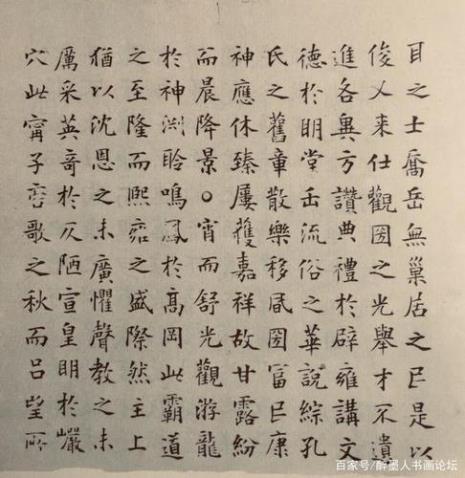 耳之士喬岳無巢居之民是以
俊乂来仕觀圀之光舉才不遺
進各異方讚典禮於辟雍講文
德於明堂正流俗之華說綜孔
氏之舊章散樂移風圀富民康
神應休臻屢獲嘉祥故甘露紛
而晨降景〇宵而舒光觀游龍
於神渊聆鳴鳳於高岡此霸道
之至隆而熙雍之盛際然主上
猶以沈恩之未廣懼聲教之未
厲采英奇於仄陋宣皇明於巖
穴此甯子商歌之秋而呂望所
百家号/醉墨人书画论坛